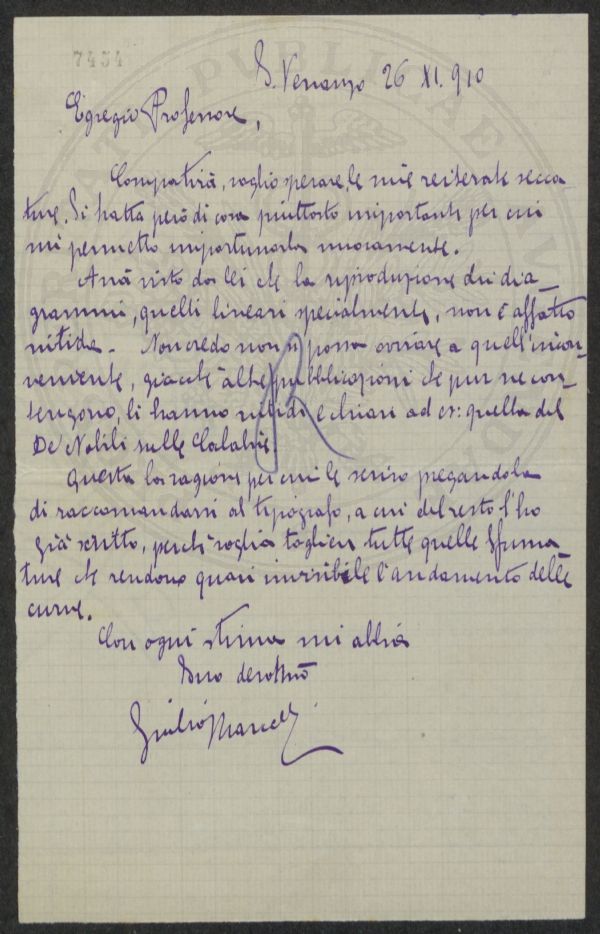 7454
S. Venanzo 26 XI. 910
Egregio Professore,
Compatirà, voglio sperare, le mie reiterate secca
ture. Si tratta però di cosa piuttosto importante per cui
mi permetto importunarla nuovamente.
Avrà visto da lei che la riproduzione dei dia_
grammi, quelli lineari specialmente, non è affatto
nitida. Non credo non si possa ovviare a quell'incon_
veniente, giacché altre pubblicazioni che pur ne con_
tengono, li hanno nitidi e chiari ad es: quella del
De Nobili sulle Calabrie.
Questa la ragione per cui le scrivo pregandola
di raccomandarsi al tipografo, a cui del resto l'ho
già scritto, perché voglia togliere tutte quelle sfuma
ture che rendono quasi invisibile l'andamento delle
curve.
Con ogni stima mi abbia
Suo devotmo
Giulio